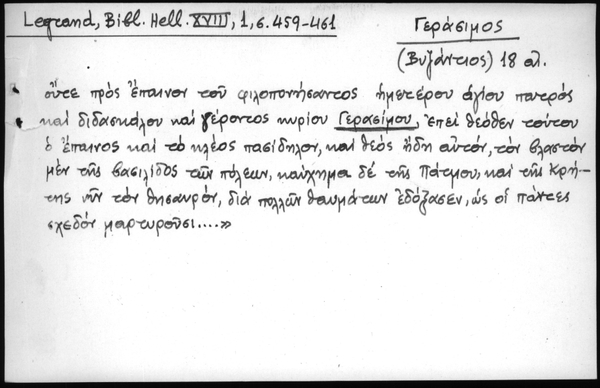 Legrand, Bibl. Hell. XVIII, 1, σ. 459-461
Γεράσιμος
(Βυζάντιος) 18 αἰ.
οὔτε πρὸς ἔπαινον τοῦ φιλοπονήσαντος ἡμετέρου ἁγίου πατρός
καὶ διδασκάλου καὶ γέροντος κυρίου Γερασίμου, ἐπεὶ θεόθεν τούτου
ὁ ἔπαινος καὶ τὸ κλέος πασίδηλον, καὶ θεὸς ἤδη αὐτόν, τὸν βλαστὸν
μὲν τῆς βασιλίδος τῶν πόλεων, καύχημα δὲ τῆς Πάτμου, καὶ τῆς Κρή-
της νῦν τὸν θησαυρόν, διὰ πολλῶν θαυμάτων ἐδόξασεν, ὡς οἱ πάντες
σχεδὸν μαρτυροῦσι....»